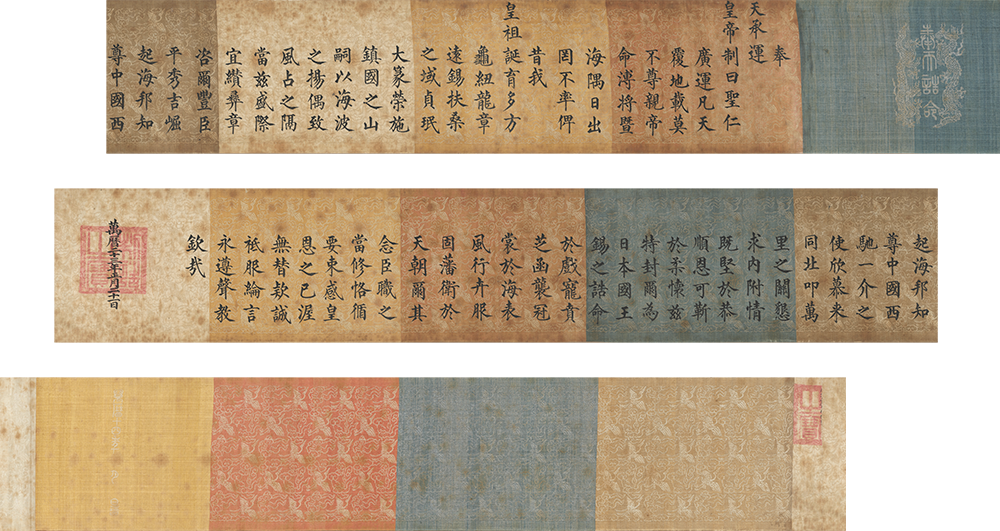 奉天誥命
奉
天承運
皇帝制曰聖仁
廣運凡天
覆地載莫
不尊親帝
命溥將暨
海隅日出
罔不率俾
昔我
皇祖誕育多方
龜紐龍章
遠錫扶桑
之域貞珉
大篆榮施
鎮國之山
嗣以海波
之揚偶致
風占之隔
當茲盛際
宜纘彝章
咨爾豐臣
平秀吉崛
起海邦知
尊中國西
起海邦知
尊中國西
馳一介之
使欣慕来
同北叩萬
里之關懇
求內附情
既堅於恭
順恩可靳
於柔懷茲
特封爾為
日本國王
錫之誥命
於戲寵賁
芝函襲冠
裳於海表
風行卉服
固藩衛於
天朝爾其
念臣職之
當修恪循
要束感皇
恩之已渥
無替款誠
祗服綸言
永遵聲教
欽哉
萬曆二十三年正月二十一日